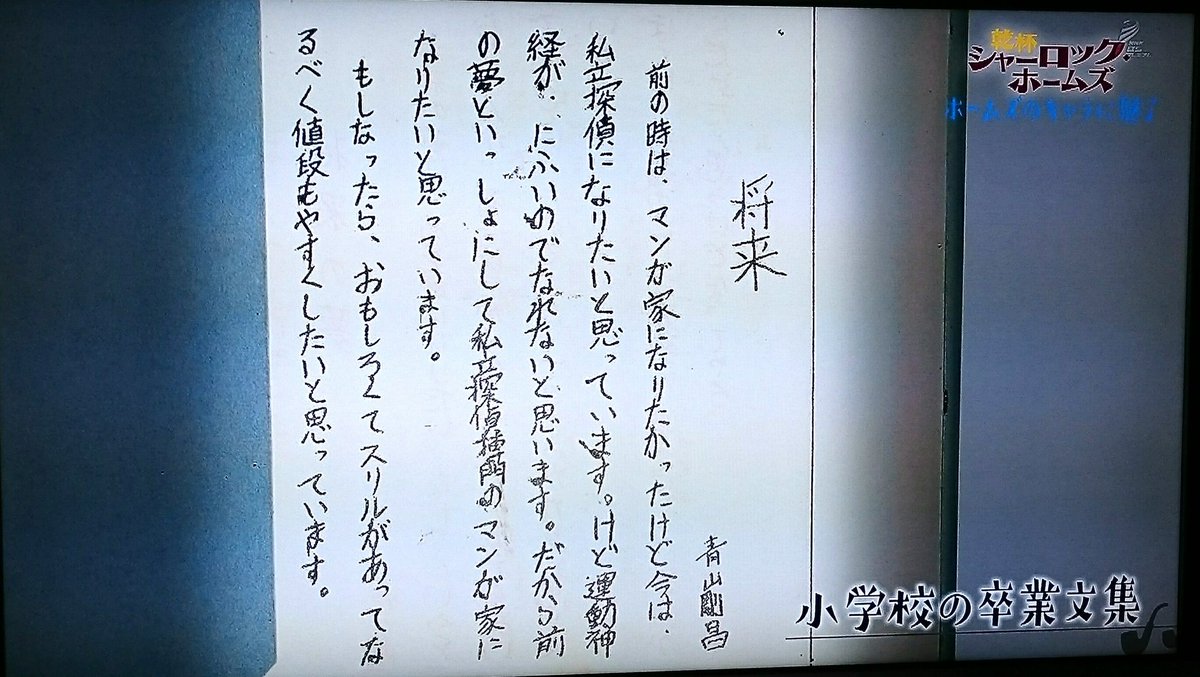 乾杯
シャーロック・
ホームズ
将来
青山剛昌
前の時は、マンガ家になりたかったけど今は、
私立探偵になりたいと思っています。けど運動神
経が、にふいのでなれないと思います。だから前
の夢といっしょにして私立探偵専門のマンガ家に
なりたいと思っています。
もしなったら、おもしろくてスリルがあってな
るべく値段もやすくしたいと思っています。
小学校の卒業文集